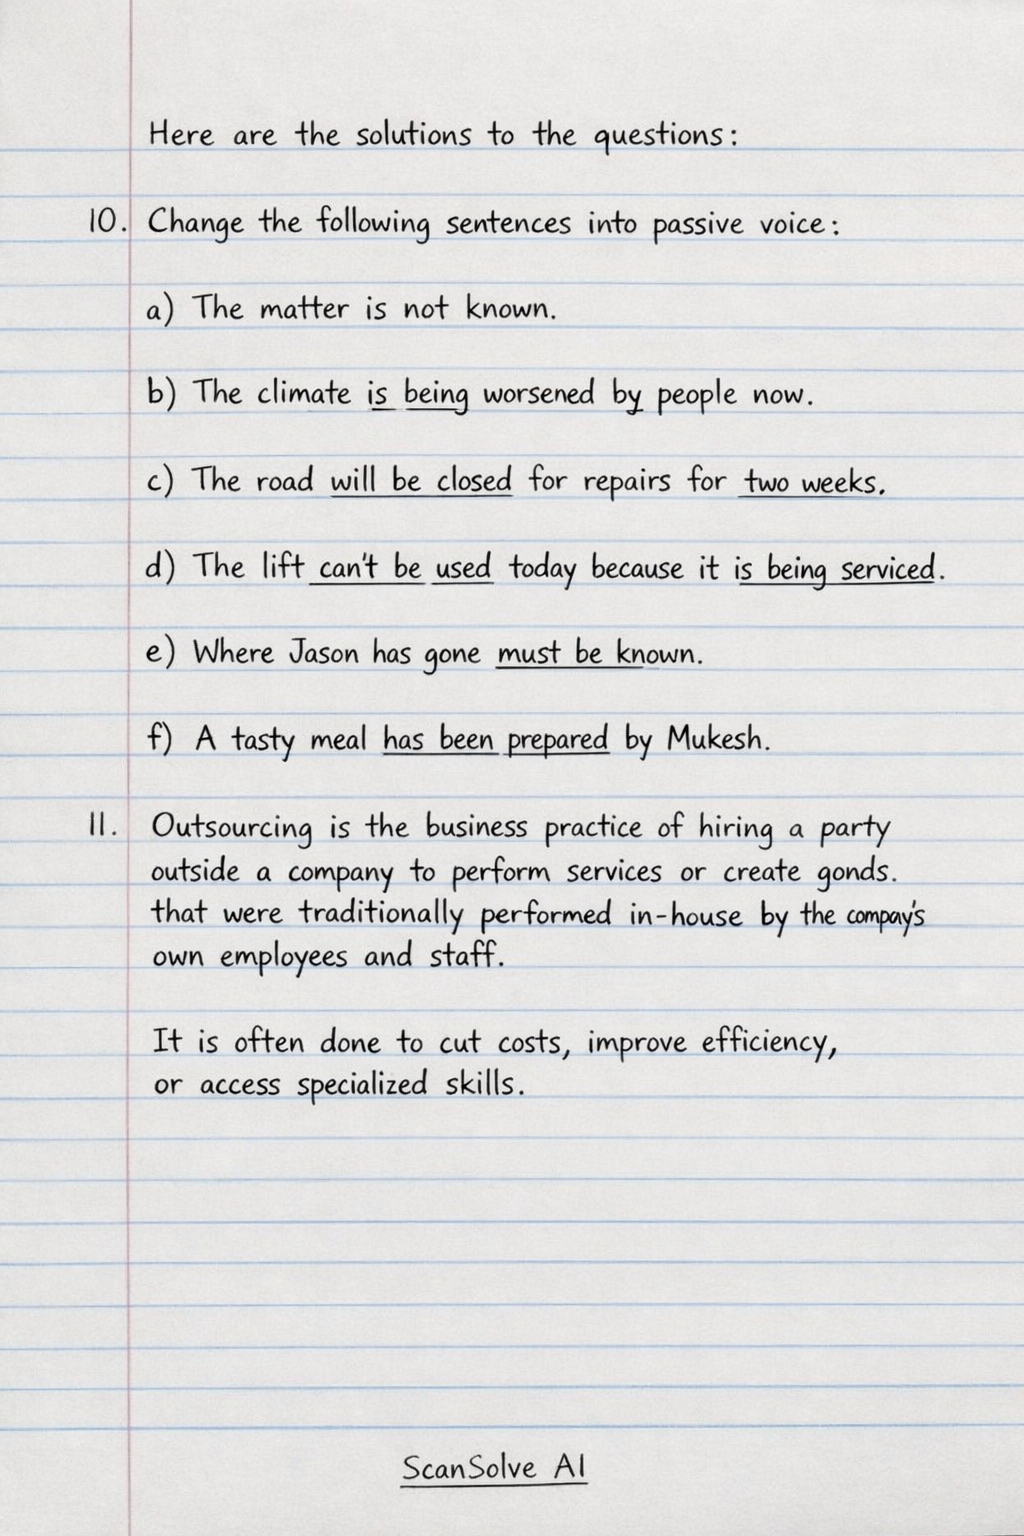 Here are the solutions to the questions:
10. Change the following sentences into passive voice:
a) The matter is not known.
b) The climate is being worsened by people now.
c) The road will be closed for repairs for two weeks.
d) The lift can't be used today because it is being serviced.
e) Where Jason has gone must be known.
f) A tasty meal has been prepared by Mukesh.
11. Outsourcing is the business practice of hiring a party
outside a company to perform services or create gonds.
that were traditionally performed in-house by the compay's
own employees and staff.
It is often done to cut costs, improve efficiency,
or access specialized skills.
ScanSolve AI